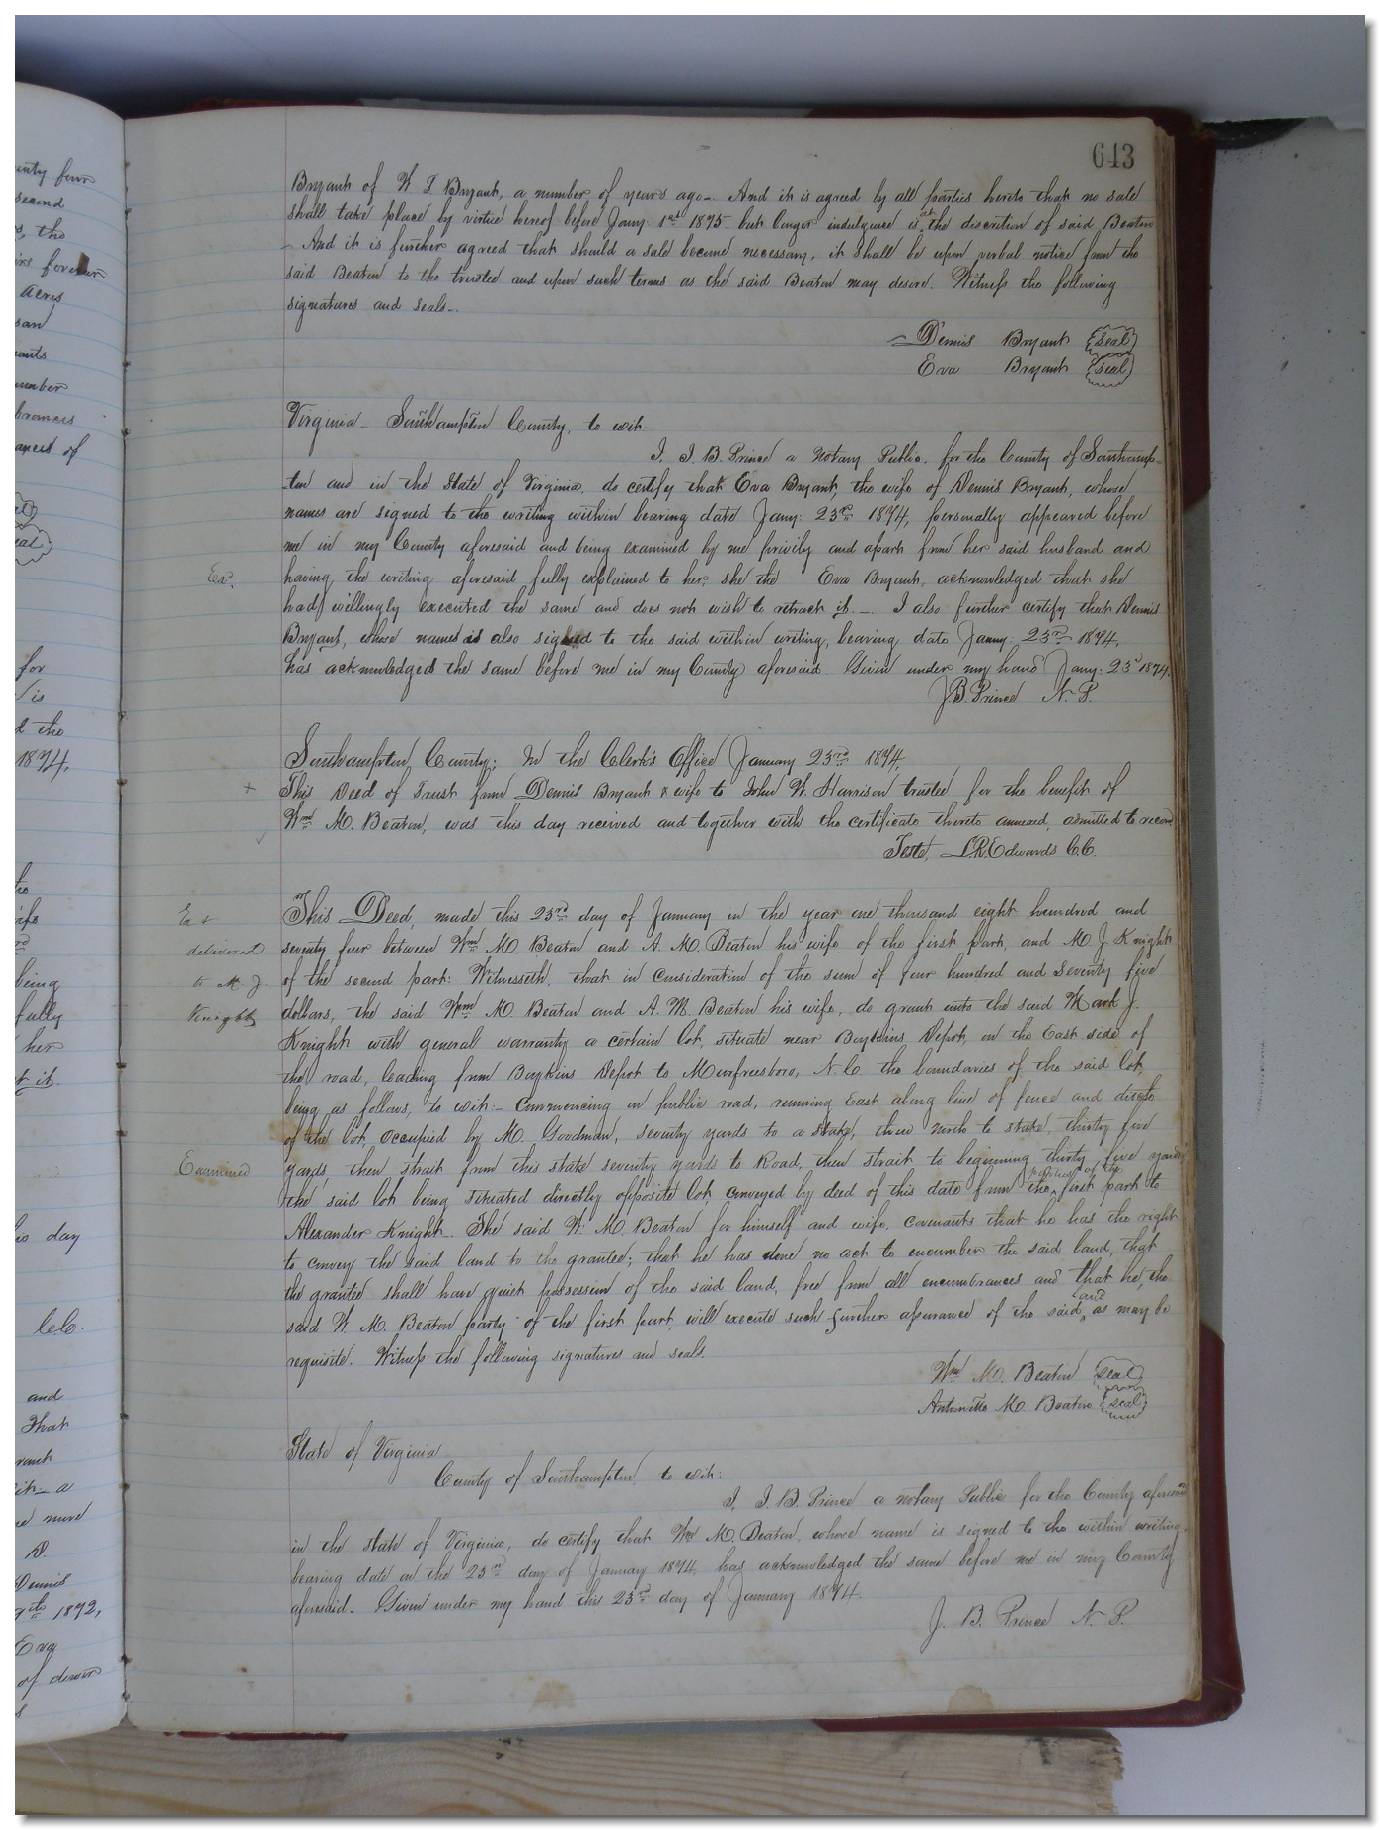 643
Bryant of W T Bryant, a number of years ago-. And it is agreed by all parties hereto that no sale
shall take place by virtue hereof before Jany: 1st 1875 but longer indulgence is at the discretion of said Beaton
- And it is further agreed that should a sale become necessary, it shall be upon verbal notice from the
said Beaton to the trustee and upon such terms as the said Beaton may desire. Witness the following
signatures and seals-.
Dennis Bryant seal
Eva Bryant seal
Virginia - Southampton County, to wit
I, J. B. Prince a Notary Public, for the County of Southamp-
-ton and in the State of Virginia, do certify that Eva Bryant, the wife of Dennis Bryant, whose
names are signed to the writing within bearing date Jany: 23rd 1874, personally appeared before
me in my County aforesaid and being examined by me privily and apart from her said husband and
Ex.
having the writing aforesaid fully explained to her, she the Eva Bryant, acknowledged that she
had willingly executed the same and does not wish to retract it. -. I also further certify that Dennis
Bryant, whose names is also signed to the said within writing, bearing date Jany: 23rd 1874,
has acknowledged the same before me in my County aforesaid. Given under my hand Jany: 23d 1874
J. B. Prince N. P.
Southampton County; In the Clerk's Office January 23rd 1874,
+ This Deed of Trust from Dennis Bryant & wife to John W. Harrison trustee for the benefit of
Wm M. Beaton, was this day received and together with the certificate thereto annexed, admitted to record
Teste, L.R. Edwards C.C.
Ex &
delivered
to M. J.
Knight
This Deed, made this 23rd day of January in the year one thousand eight hundred and
seventy four between Wm M. Beaton and A. M. Beaton his wife of the first part, and M. J. Knight
of the second part: Witnesseth, that in consideration of the sum of four hundred and seventy five
dollars, the said Wm M. Beaton and A. M. Beaton his wife, do grant unto the said Mark J.
Knight with general warranty a certain lot, situate near Boykins Depot, on the East side of
the road, leading from Boykins Depot to Murfreesboro, N. C. the boundaries of the said lot,
being as follows, to wit:- Commencing on public road, running East along line of fence and ditch
of the lot occupied by M. Goodman, seventy yards to a stake, then north to stake, thirty five
Examined
yards, then strait from this stake seventy yards to Road, then strait to beginning thirty five yards
the said lot being situated directly opposite lot conveyed by deed of this date from the parties of the first part to
Alexander Knight. The said W. M. Beaton for himself and wife, covenants that he has the right
to convey the said land to the grantee; that he has done no act to encumber the said land, that
the grantee shall have quiet possession of the said land, free from all encumbrances and that he, the
said W. M. Beaton party of the first part will execute such further assurance of the said land as may be
requisite. Witness the following signatures and seals.
Wm M. Beaton seal
Antonette M. Beaton seal
State of Virginia
County of Southampton, to wit:
I, J. B. Prince a notary Public for the County aforesaid
in the State of Virginia, do certify that Wm M. Beaton, whose name is signed to the within writing,
bearing date on the 23rd day of January 1874, has acknowledged the same before me in my County
aforesaid. Given under my hand this 23rd day of January 1874.
J. B. Prince N. P.